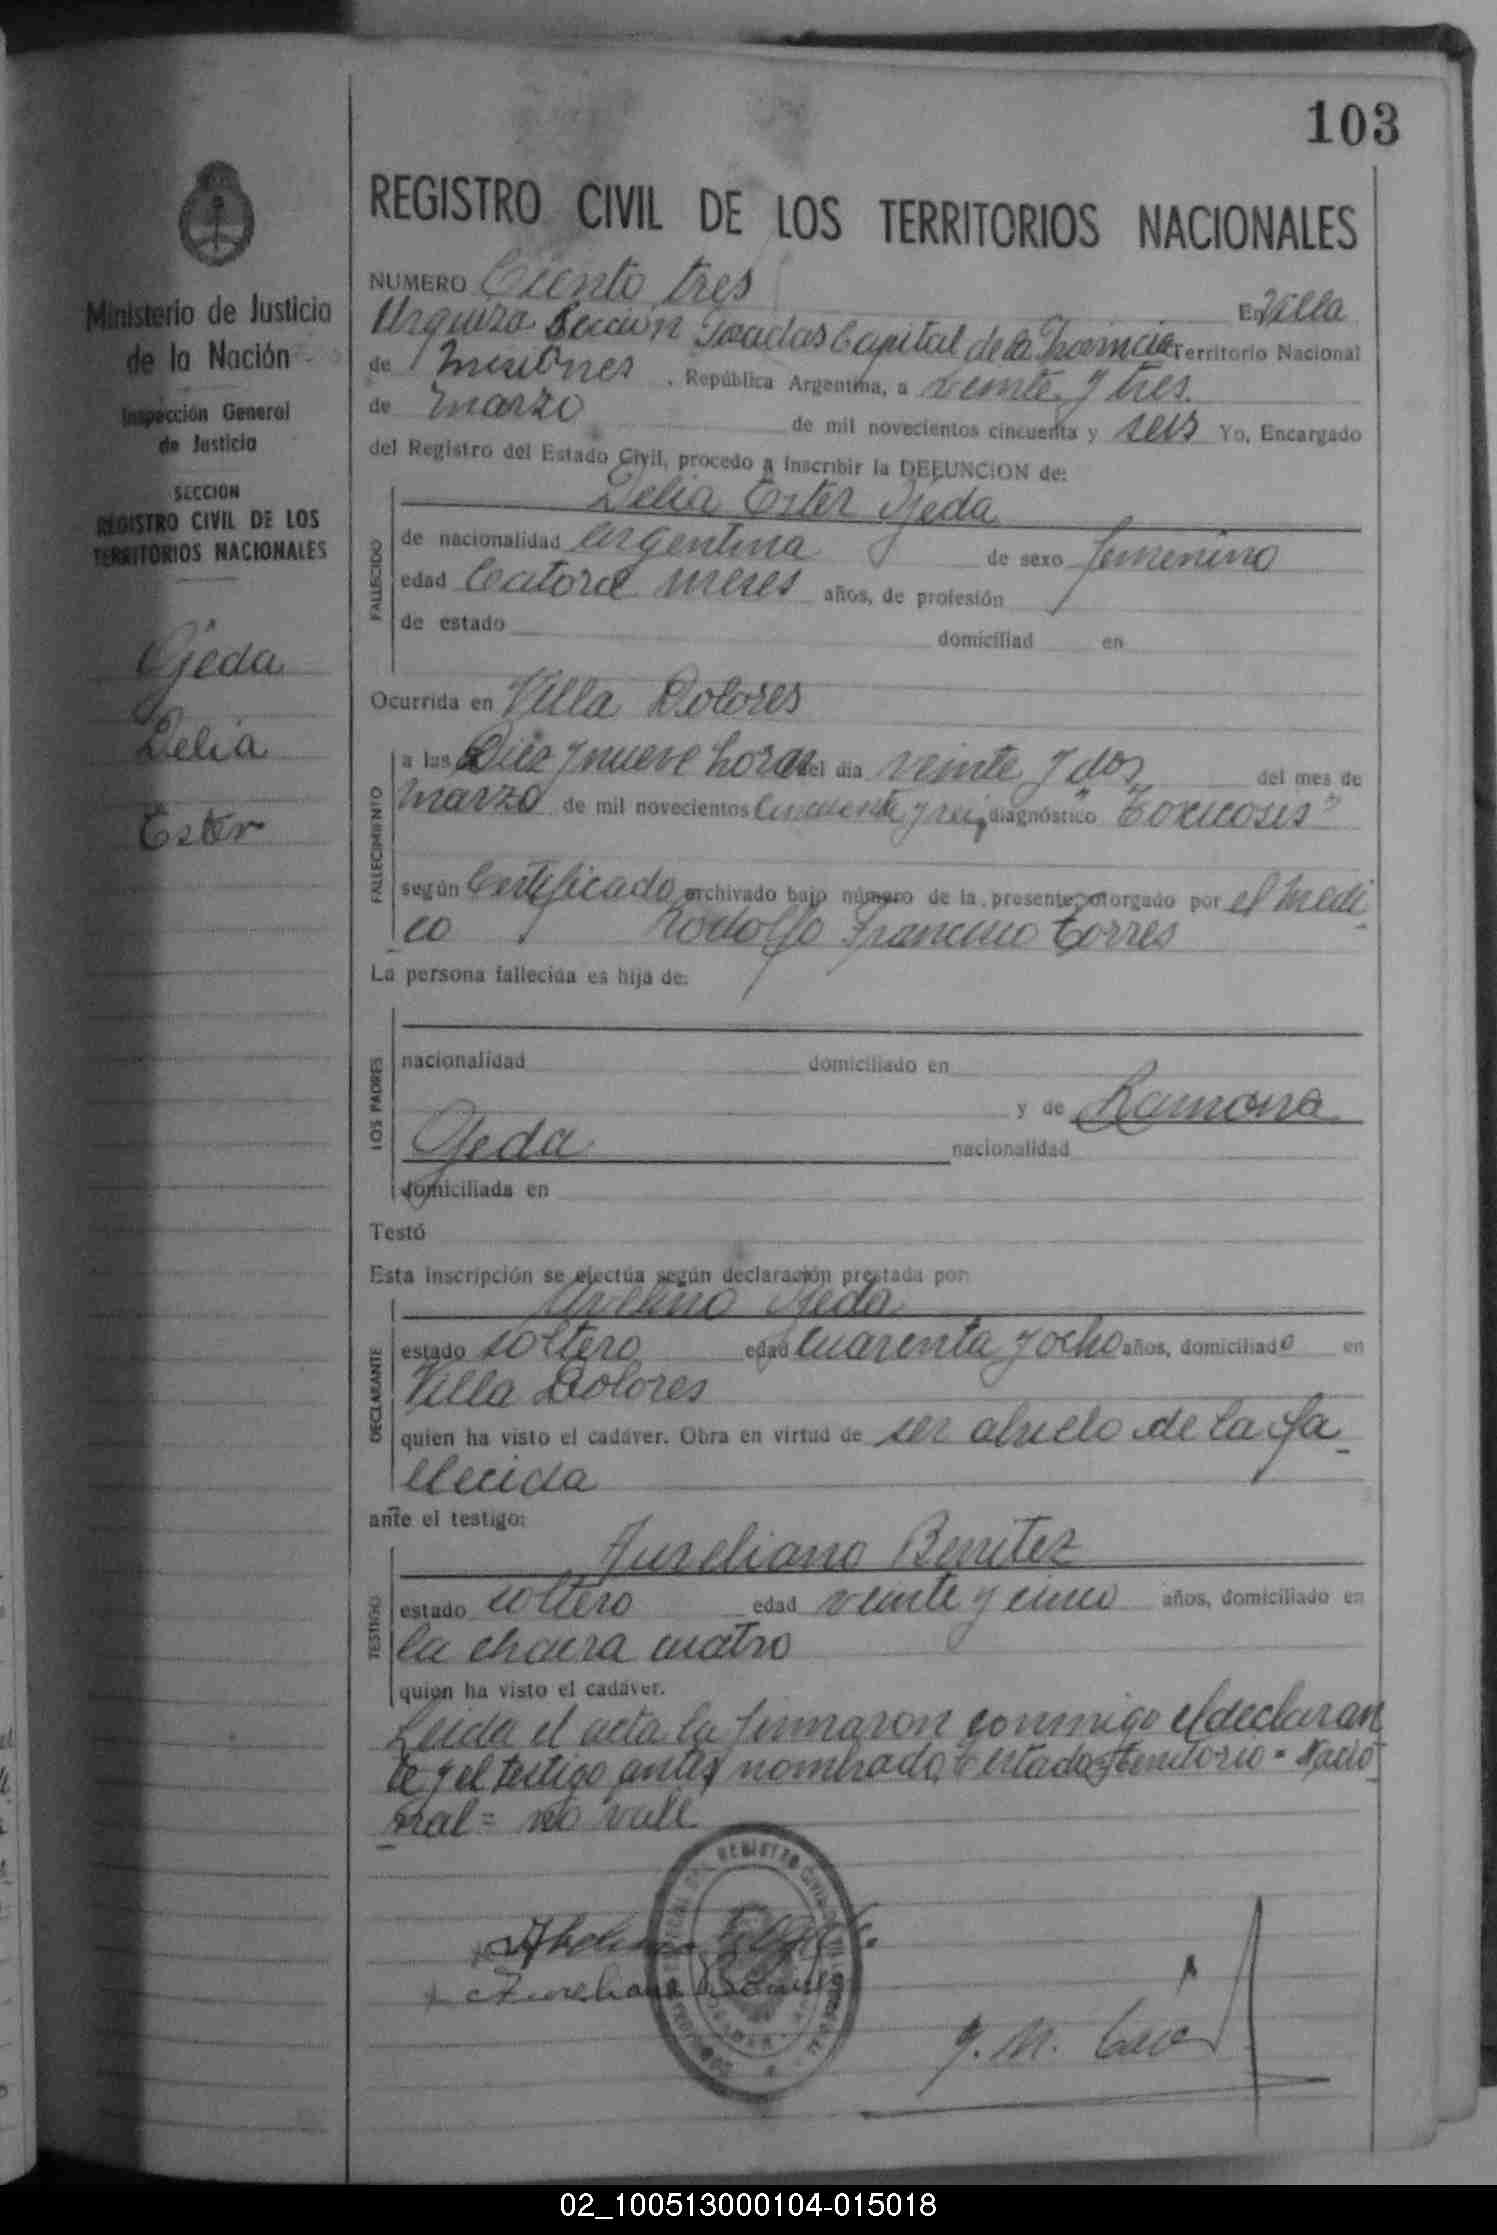 103
Ministerio de Justicia
de la Nación
Inspección General
de Justicia
SECCION
REGISTRO CIVIL DE LOS
TERRITORIOS NACIONALES
Ojeda
Delia
Ester
REGISTRO CIVIL DE LOS TERRITORIOS NACIONALES
NUMERO Ciento tres
En Villa
Urquiza Sección Posadas Capital de la Provincia Territorio Nacional
de Misiones, República Argentina, a veinte y tres
de marzo de mil novecientos cincuenta y seis Yo, Encargado
del Registro del Estado Civil, procedo a inscribir la DEFUNCION de:
Delia Ester Ojeda
FALLECIDO
de nacionalidad argentina de sexo femenino
edad Catorce meses años, de profesión
de estado domiciliad en
Ocurrida en Villa Dolores
FALLECIMIENTO
a las Diez y nueve horas del día veinte y dos del mes de
marzo de mil novecientos Cincuenta y seis, diagnóstico "Toxicosis"
según Certificado archivado bajo número de la presente, otorgado por el Medi-
co Rodolfo Francisco Torres
La persona fallecida es hija de:
LOS PADRES
nacionalidad domiciliado en
y de Ramona
Ojeda nacionalidad
domiciliada en
Testó
Esta inscripción se efectúa según declaración prestada por:
Avelino Ojeda
DECLARANTE
estado soltero edad cuarenta y ocho años, domiciliado en
Villa Dolores
quien ha visto el cadáver. Obra en virtud de ser abuelo de la fa-
llecida
ante el testigo:
Aureliano Benitez
TESTIGO
estado soltero edad veinte y cinco años, domiciliado en
la chacra cuatro
quien ha visto el cadáver.
Leida el acta la firmaron conmigo el declaran
te y el testigo antes nombrado, Testado territorio = Nacio-
nal = no vale
Aureliano Benites
02_100513000104-015018